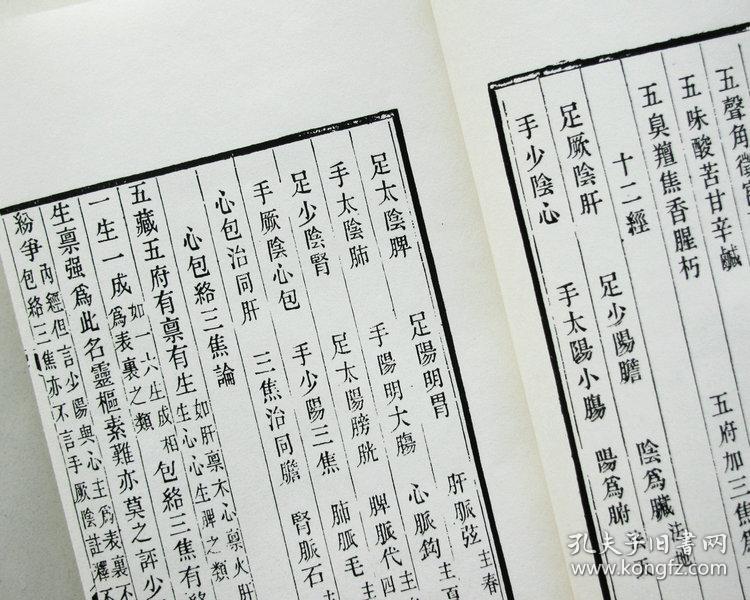 五聲角徵
五味酸苦甘辛鹹
五臭羶焦香腥朽 五府加三焦
十二經
足厥陰肝 足少陽膽 陰爲臟
手少陰心 手太陽小腸 陽爲腑
足太陰脾 足陽明胃 肝脈弦 主春
手太陰肺 手陽明大腸 心脈鈎 主
足少陰腎 足太陽膀胱 脾脈代 主四
手厥陰心包 手少陽三焦 肺脈毛 主
心包治同肝 三焦治同膽 腎脈石
心包絡三焦論
五藏五府有禀有生 如肝禀木心禀火肝
生心心生脾之類
一生一成 如一六生成相
爲表裏之類 包絡三焦有
生禀强爲此名靈樞素難亦莫之評少
紛爭 內經但言少陽與心主爲表裏不
包絡三焦亦不言手厥陰註釋不
孔夫子旧书网
www.kongfz.com